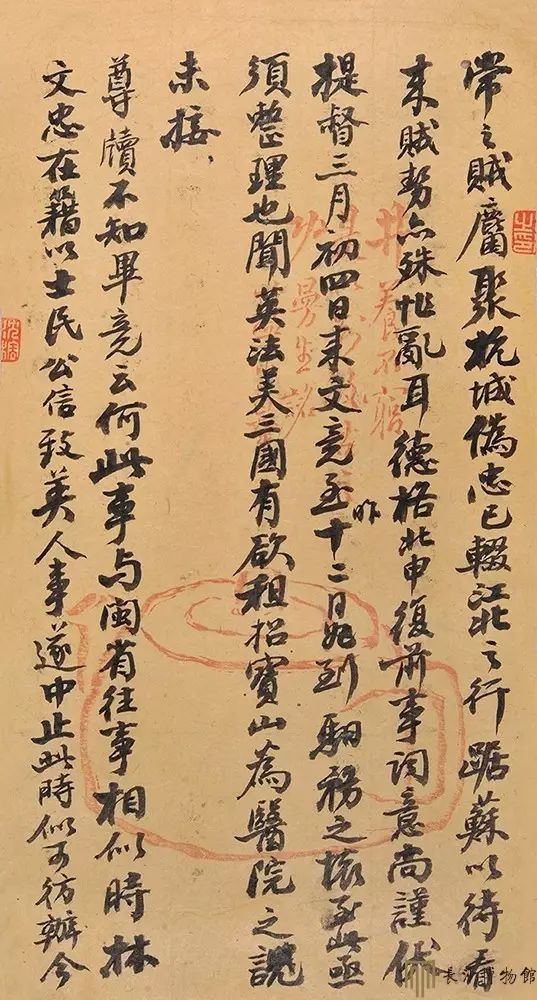 常之賊麕聚杭城偽忠已輟江北之行踞蘇以待看
來賊勢亦殊亂耳德格北申復前事詞意尚謹伏
提督三月初四日來文竟至昨十二日始到馹務之壞至此亟
須整理也聞英法美三國有欲租招寶山為醫院之說
未接
尊牘不知畢竟云何此事与閩省往事相似時林
文忠在籍以士民公信致英人事遂中止此時似可彷辦今
井養不窮
曼生銘
之印
長沙博物館